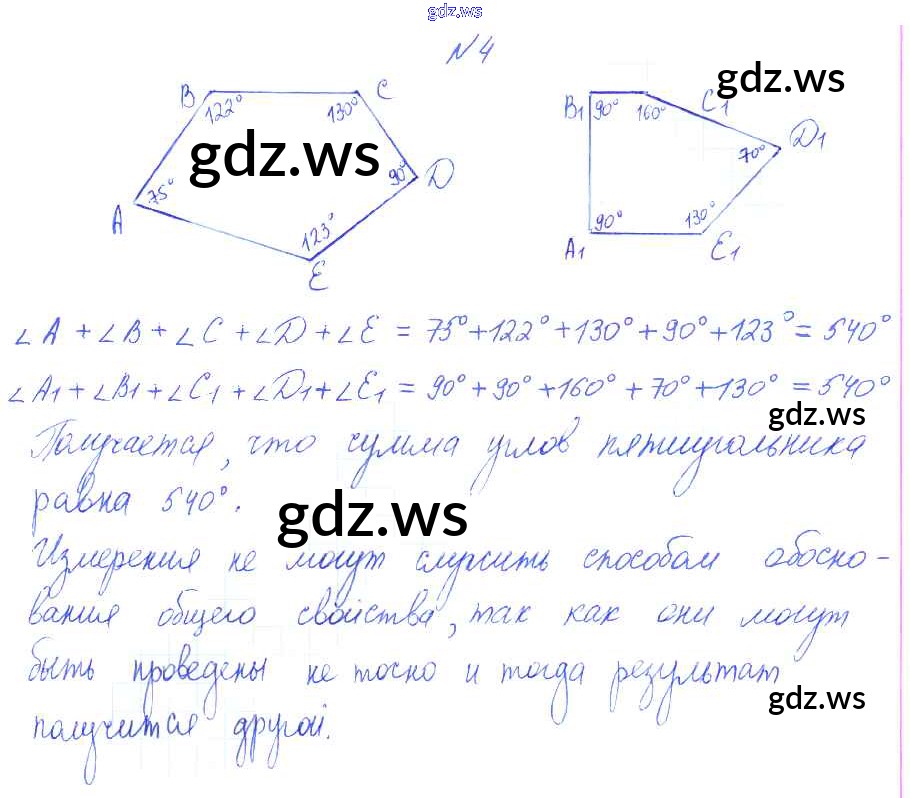 gdz.ws
N4
gdz.ws
B 122° 130° C
B1 90° 160° C1
gdz.ws
90° D
70° D1
75°
A
123°
E
90° 130°
A1 E1
∠A + ∠B + ∠C + ∠D + ∠E = 75° + 122° + 130° + 90° + 123° = 540°
∠A1 + ∠B1 + ∠C1 + ∠D1 + ∠E1 = 90° + 90° + 160° + 70° + 130° = 540°
gdz.ws
Получается, что сумма углов пятиугольника
равна 540°.
gdz.ws
Измерения не могут служить способом обосно-
вания общего свойства, так как они могут
быть проведены не тосно и тогда результат
gdz.ws
получится другой.